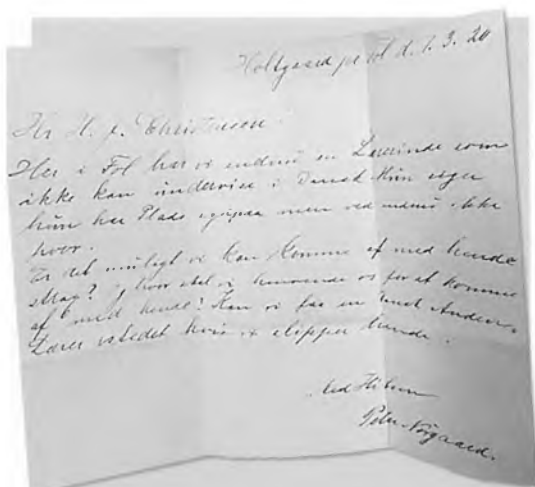 Holtgaard pr Fol d. 1.3.20
Hr H. J. Christensen
Her i Fol har vi endnu en Lærerinde som
ikke kan undervise i Dansk Hun siger
hun har Plads men ved endnu ikke
hvor.
Er det muligt vi kan komme af med hende
hvor skal vi henvende os for at komme
af med hende! Kan vi faa en dansk
Lærer istedet hvis vi slipper hende.
Med Hilsen
Peter Nørgaard.